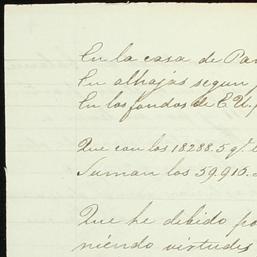 En la casa de Par
En alhajas segun
En los fondos de E.U.
Que con los 18288.5 q.
Suman los 59.910.
Que he debido po
niendo virtudes